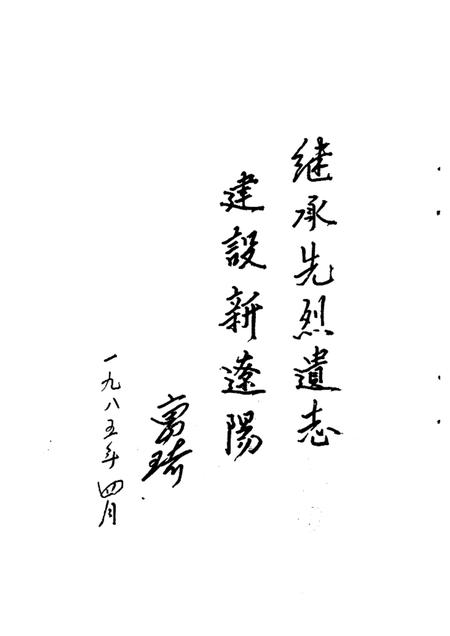 继承先烈遺志
建設新遼陽
一九八五年四月